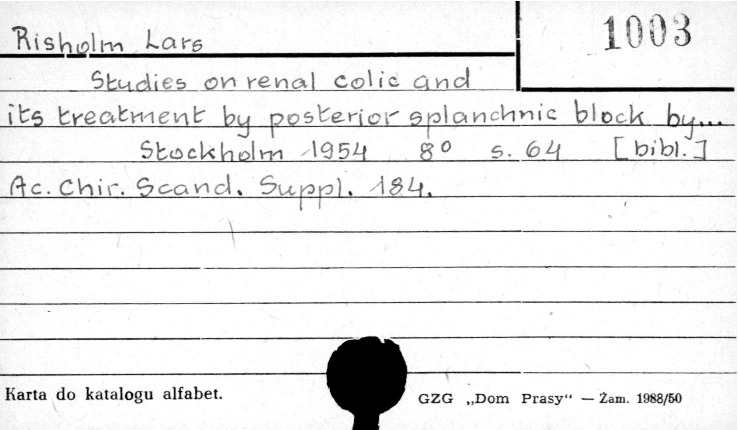 Risholm Lars
1003
Studies on renal colic and
its treatment by posterior splanchnic block by...
Stockholm 1954 8° s. 64 [bibl.]
Ac. Chir. Scand. Suppl. 184.
Karta do katalogu alfabet.
GZG „Dom Prasy“ — Zam. 1988/50